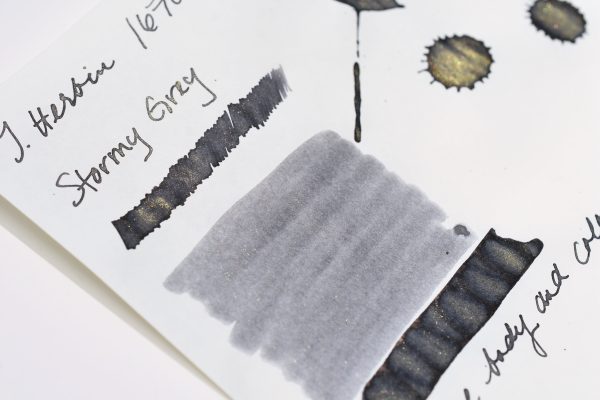 J. Herbin 1670
Stormy Gray
body and